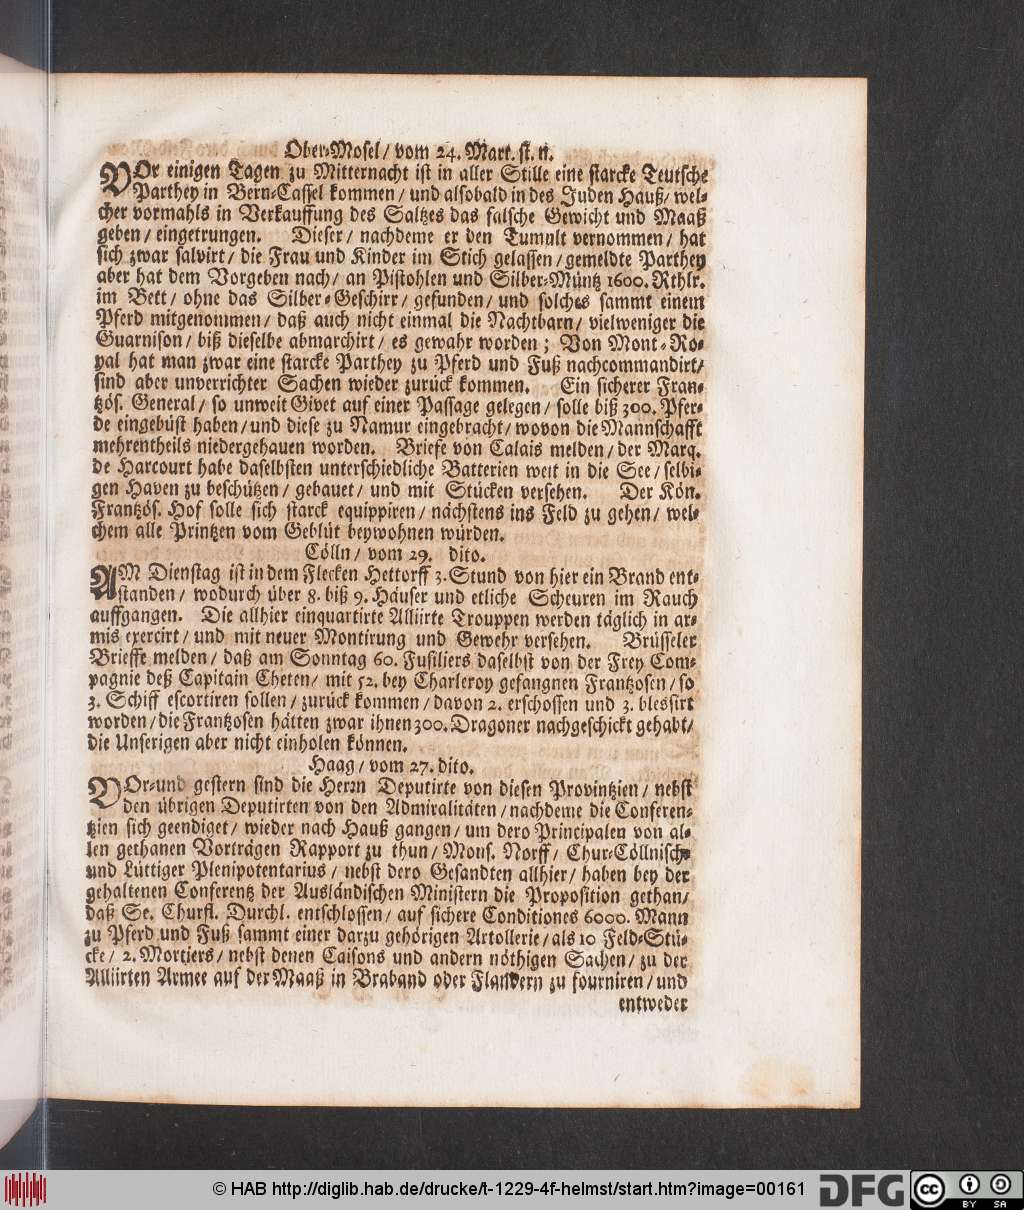 Ober-Mosel / vom 24. Mart. st. n.
VOr einigen Tagen zu Mitternacht ist in aller Stille eine starcke Teutsche
Parthey in Bern-Cassel kommen / und alsobald in des Juden Hauß / wel-
cher vormahls in Verkauffung des Saltzes das falsche Gewicht und Maaß
geben / eingetrungen. Dieser / nachdeme er den Tumult vernommen / hat
sich zwar salvirt / die Frau und Kinder im Stich gelassen / gemeldte Parthey
aber hat dem Vorgeben nach / an Pistohlen und Silber-Müntz 1600. Rthlr.
im Bett / ohne das Silber-Geschirr / gefunden / und solches sammt einem
Pferd mitgenommen / daß auch nicht einmal die Nachtbarn / vielweniger die
Guarnison / biß dieselbe abmarchirt / es gewahr worden ; Von Mont-Ro-
yal hat man zwar eine starcke Parthey zu Pferd und Fuß nachcommandirt /
sind aber unverrichter Sachen wieder zurück kommen. Ein sicherer Fran-
tzös. General / so unweit Givet auf einer Passage gelegen / solle biß 300. Pfer-
de eingebüst haben / und diese zu Namur eingebracht / wovon die Mannschafft
mehrentheils niedergehauen worden. Briefe von Calais melden / der Marq.
de Harcourt habe daselbsten unterschiedliche Batterien weit in die See / selbi-
gen Haven zu beschützen / gebauet / und mit Stücken versehen. Der Kön.
Frantzös. Hof solle sich starck equippiren / nächstens ins Feld zu gehen / wel-
chem alle Printzen vom Geblüt beywohnen würden.
Cölln / vom 29. dito.
AM Dienstag ist in dem Flecken Hettorff 3. Stund von hier ein Brand ent-
standen / wodurch über 8. biß 9. Häuser und etliche Scheuren im Rauch
auffgangen. Die allhier einquartirte Alliirte Trouppen werden täglich in ar-
mis exercirt / und mit neuer Montirung und Gewehr versehen. Brüsseler
Brieffe melden / daß am Sonntag 60. Fusiliers daselbst von der Frey Com-
pagnie deß Capitain Cheten / mit 52. bey Charleroy gefangnen Frantzosen / so
3. Schiff escortiren sollen / zurück kommen / davon 2. erschossen und 3. blessirt
worden / die Frantzosen hätten zwar ihnen 300. Dragoner nachgeschickt gehabt /
die Unserigen aber nicht einholen können.
Haag / vom 27. dito.
VOr-und gestern sind die Herrn Deputirte von diesen Provintzien / nebst
den übrigen Deputirten von den Admiralitäten / nachdeme die Conferen-
tzien sich geendiget / wieder nach Hauß gangen / um dero Principalen von al-
len gethanen Vorträgen Rapport zu thun / Mons. Norff / Chur-Cöllnisch
und Lüttiger Plenipotentarius / nebst dero Gesandten allhier / haben bey der
gehaltenen Conferentz der Ausländischen Ministern die Proposition gethan /
daß Se. Churfl. Durchl. entschlossen / auf sichere Conditiones 6000. Mann
zu Pferd und Fuß sammt einer darzu gehörigen Artollerie / als 10 Feld-Stü-
cke / 2. Mortiers / nebst denen Caisons und andern nöthigen Sachen / zu der
Alliirten Armee auf der Maaß in Braband oder Flandern zu fourniren / und
entweder
© HAB http://diglib.hab.de/drucke/t-1229-4f-helmst/start.htm?image=00161
DFG
cc
BY SA